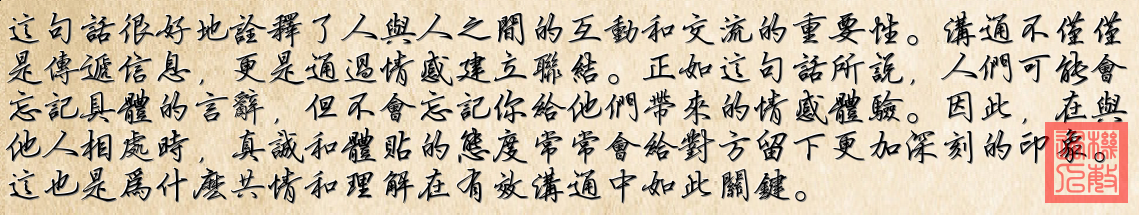 這句話很好地詮釋了人與人之間的互動和交流的重要性。溝通不僅僅
是傳遞信息，更是通過情感建立聯結。正如這句話所說，人們可能會
忘記具體的言辭，但不會忘記你給他們帶來的情感體驗。因此，在與
他人相處時，真誠和體貼的態度常常會給對方留下更加深刻的印象。
這也是為什麼共情和理解在有效溝通中如此關鍵。